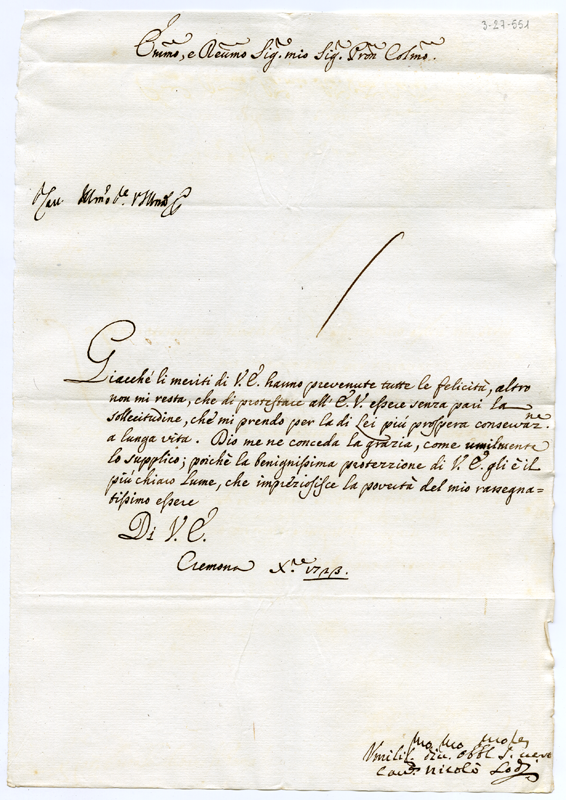 3-27-551
Emo, e Reũmo Sig.r mio Sig.r Pron Colmo.
Giacché li meriti di V. E. hanno prevenute tutte le felicità, altro
non mi resta, che di protestare all' E. V. essere senza pari la
sollecitudine, che mi prendo per la di Lei più prospera conservaz.ne
a lunga vita. Dio me ne conceda la grazia, come umilmente
lo supplico; poichè la benignissima protezzione di V. E. gli è il
più chiaro Lume, che impreziosisce la povertà del mio rassegna=
tissimo essere
Di V. E.
Cremona X.re 1723.
Umiliss. div. obbl. S. vero
Nicolò Lodi